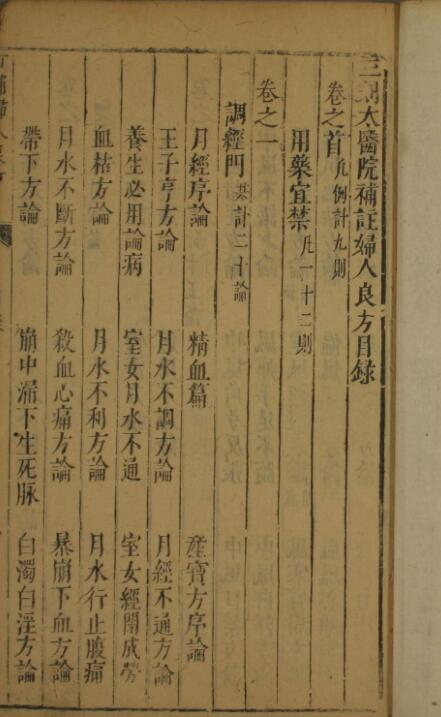 太醫院補註婦人良方目錄
卷之首 凡例計九則
用藥宜禁 凡一十二則
卷之一
調經門 共計二十論
月經序論 精血篇 產寶方序論
王子亨方論 月水不調方論 月經不通方論
養生必用論病 室女月水不通 室女經閉成勞
血枯方論 月水不利方論 月水行止腹痛
月水不斷方論 殺血心痛方論 暴崩下血方論
帶下方論 崩中漏下生死脉 白濁白淫方論